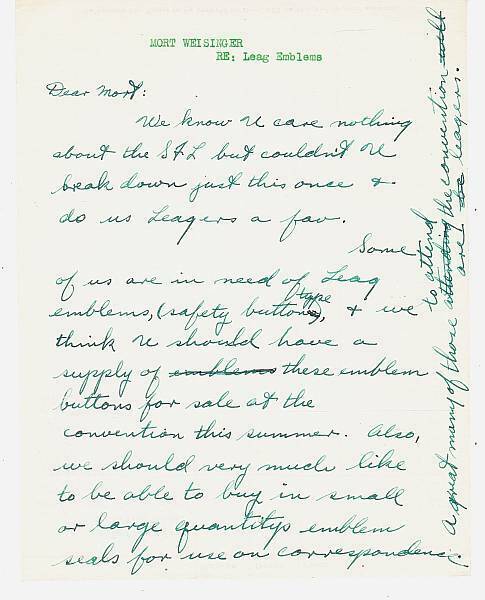 MORT WEISINGER
RE: Leag Emblems
Dear Mort:
We know U care nothing
about the SFL but couldn't U
break down just this once &
do us Leagers a fav.
Some
of us are in need of Leag
emblems, (safety button type), & we
think U should have a
supply of emblems these emblem
buttons for sale at the
convention this summer. Also,
we should very much like
to be able to buy in small
or large quantitys emblem
seals for use on correspondence.
A great many of those attending to attend the convention will
are be leagers.